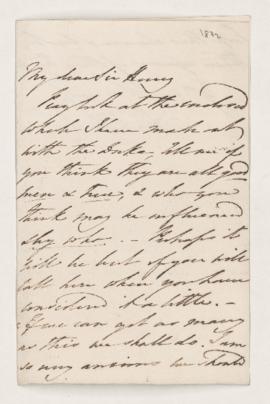 1832
My dear Sir Henry
Pray look at the enclosed
which I have made out
with the Duke - tell me if
you think they are all good
men & true, & who you
think may be influenced
by who. - Perhaps it
will be best if you will
call here when you have
considered it a little. -
If we can get as many
as this we shall do. I am
so very anxious we should